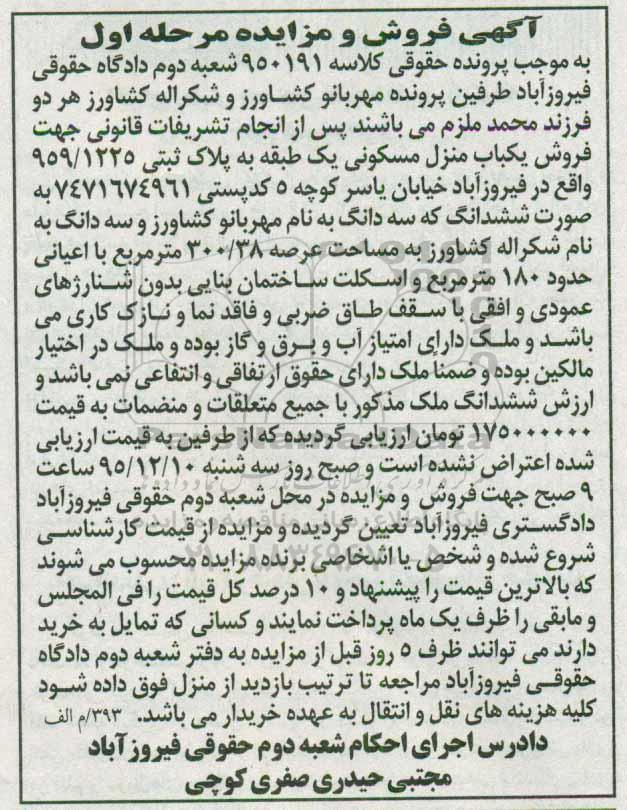 آگهی فروش و مزایده مرحله اول
به موجب پرونده حقوقی کلاسه ۹۵۰۱۹۱ شعبه دوم دادگاه حقوقی
فیروزآباد طرفین پرونده مهربانو کشاورز و شکراله کشاورز هر دو
فرزند محمد ملزم می باشند پس از انجام تشریفات قانونی جهت
فروش یکباب منزل مسکونی یک طبقه به پلاک ثبتی ۹۵۹/۱۲۲۵
واقع در فیروزآباد خیابان یاسر کوچه ۵ کدپستی ۷۴۷۱۶۷۴۹۶۱ به
صورت ششدانگ که سه دانگ به نام مهربانو کشاورز و سه دانگ به
نام شکراله کشاورز به مساحت عرصه ۳۰۰/۳۸ مترمربع با اعیانی
حدود ۱۸۰ مترمربع و اسکلت ساختمان بنایی بدون شنارژهای
عمودی و افقی با سقف طاق ضربی و فاقد نما و نازک کاری می
باشد و ملک دارای امتیاز آب و برق و گاز بوده و ملک در اختیار
مالکین بوده و ضمنا ملک دارای حقوق ارتفاقی و انتفاعی نمی باشد و
ارزش ششدانگ ملک مذکور با جمیع متعلقات و منضمات به قیمت
۱۷۵۰۰۰۰۰۰ تومان ارزیابی گردیده که از طرفین به قیمت ارزیابی
شده اعتراض نشده است و صبح روز سه شنبه ۹۵/۱۲/۱۰ ساعت
۹ صبح جهت فروش و مزایده در محل شعبه دوم حقوقی فیروزآباد
دادگستری فیروزآباد تعیین گردیده و مزایده از قیمت کارشناسی
شروع شده و شخص یا اشخاصی برنده مزایده محسوب می شوند
که بالاترین قیمت را پیشنهاد و ۱۰ درصد کل قیمت را فی المجلس
و مابقی را ظرف یک ماه پرداخت نمایند و کسانی که تمایل به خرید
دارند می توانند ظرف ۵ روز قبل از مزایده به دفتر شعبه دوم دادگاه
حقوقی فیروزآباد مراجعه تا ترتیب بازدید از منزل فوق داده شود
کلیه هزینه های نقل و انتقال به عهده خریدار می باشد. ۳۹۳/م الف
دادرس اجرای احکام شعبه دوم حقوقی فیروزآباد
مجتبی حیدری صفری کوچی